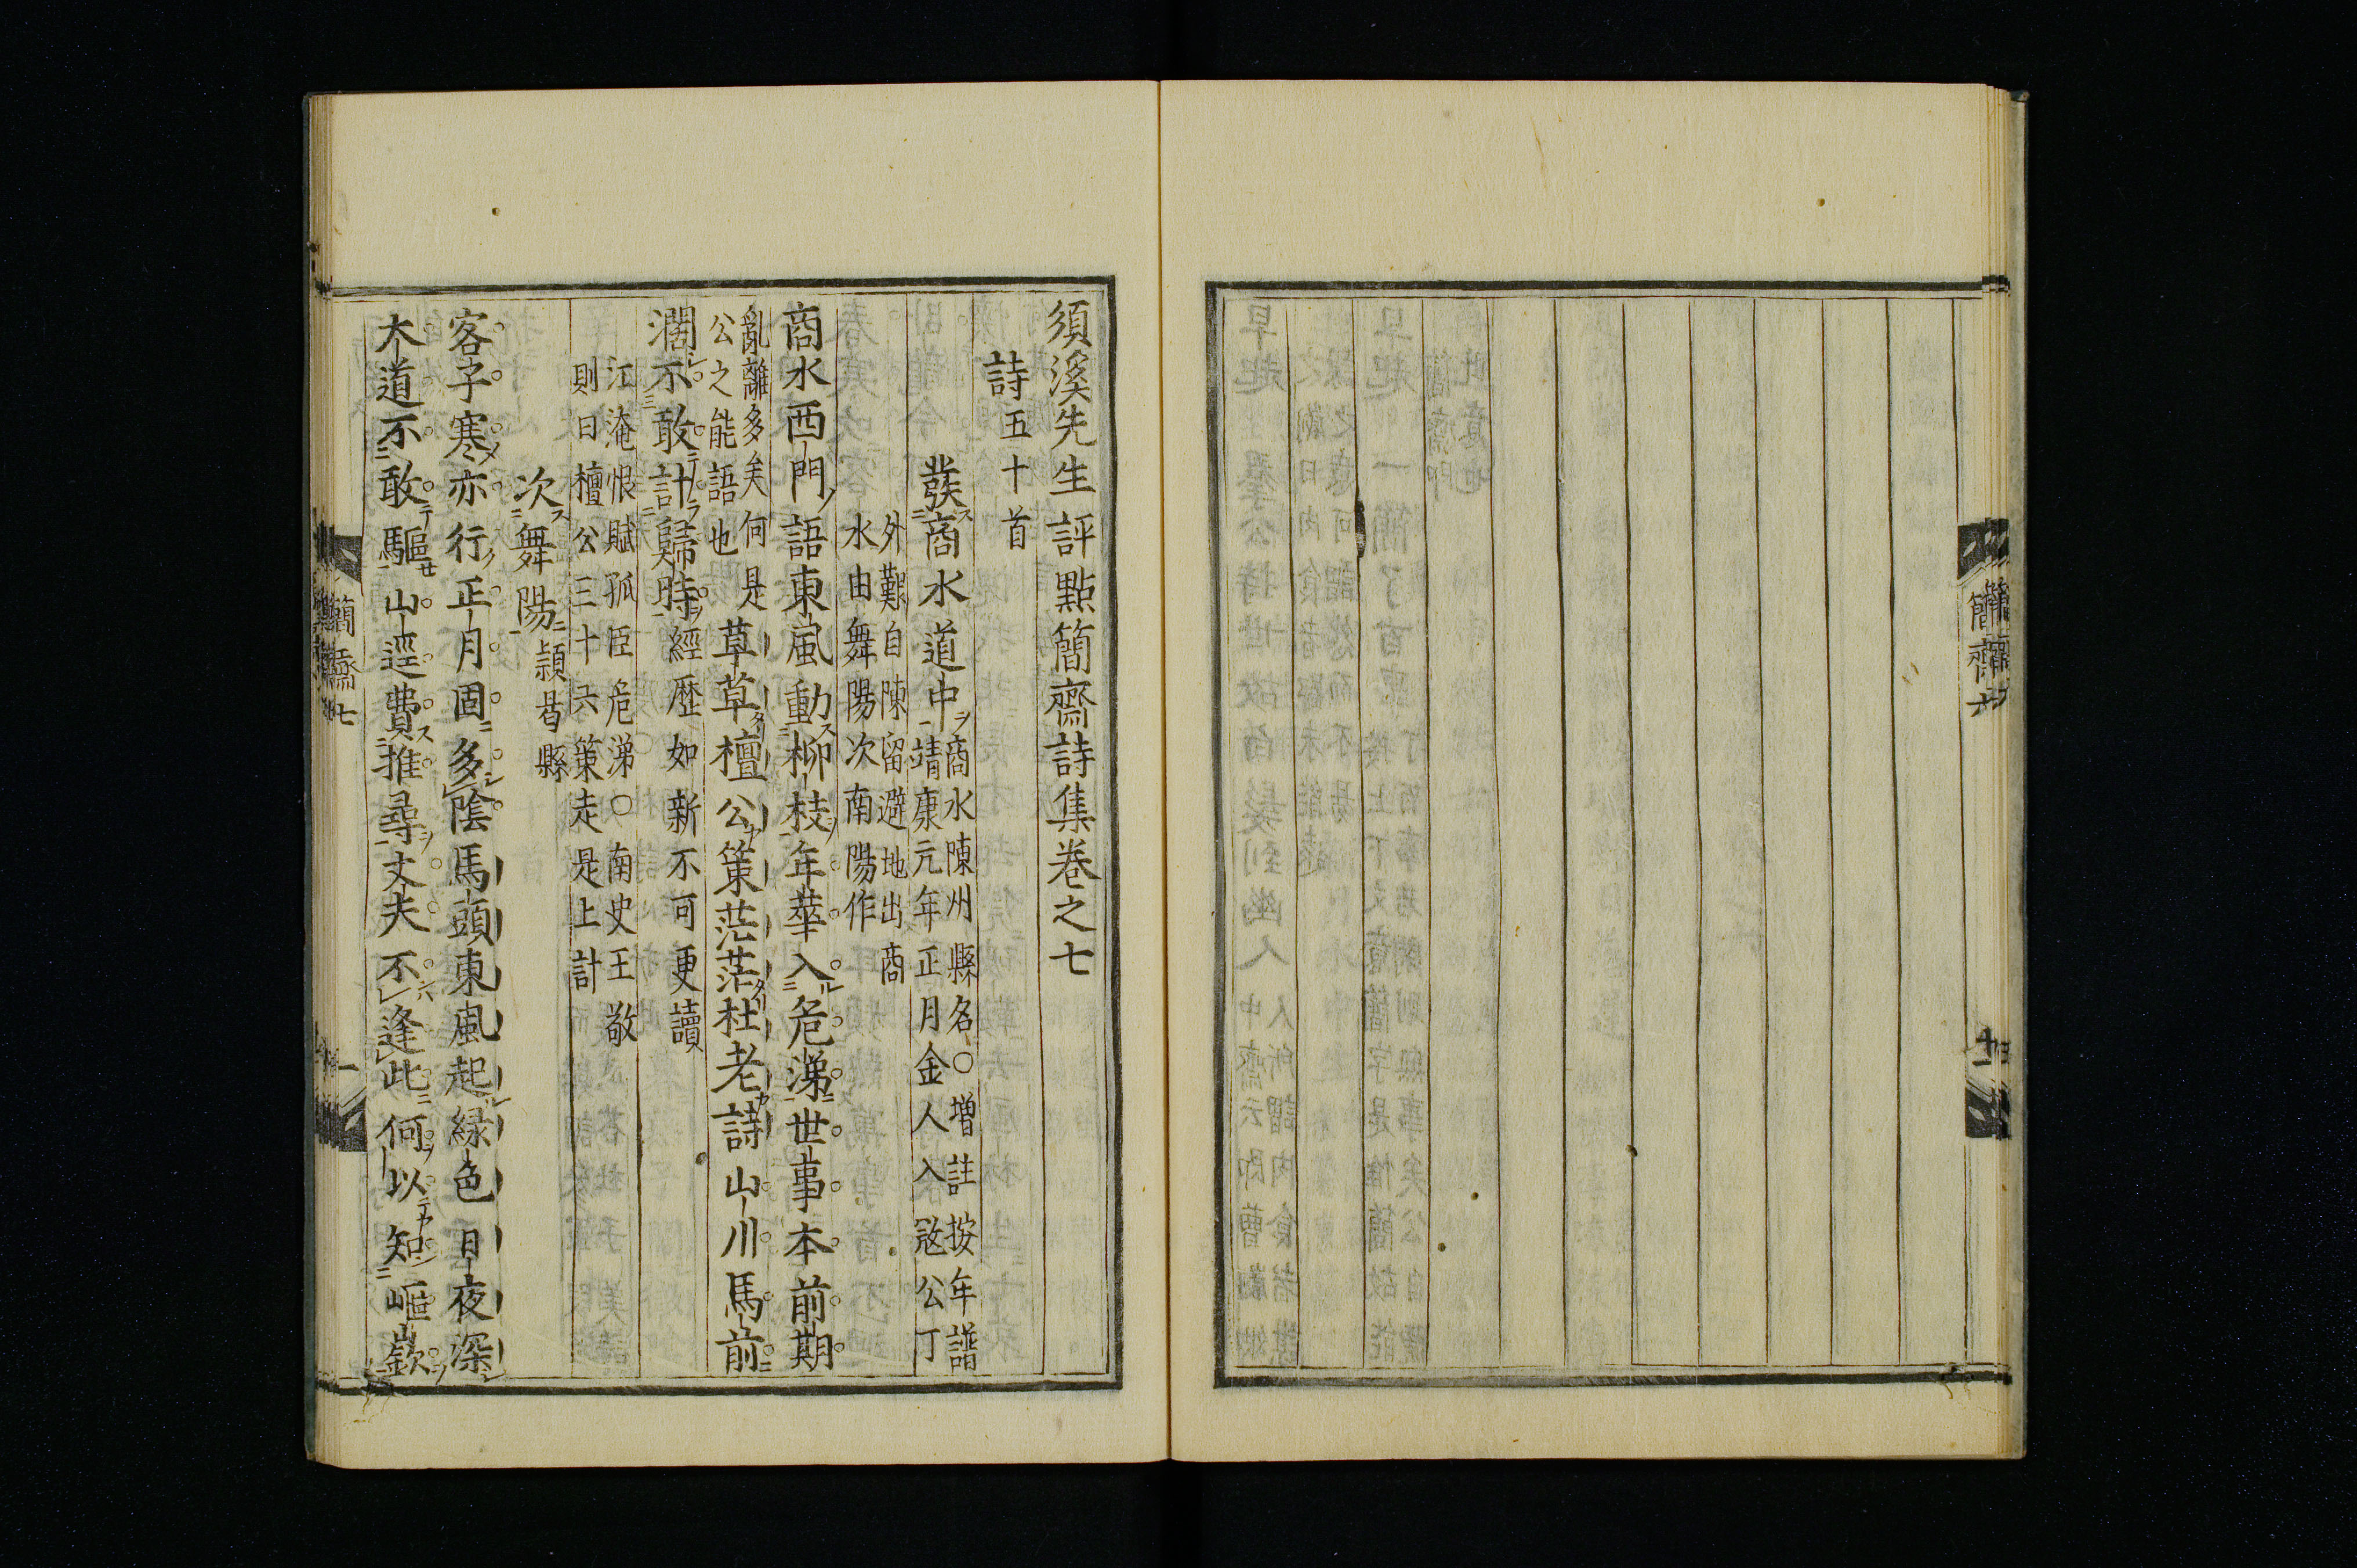 須溪先生評點簡齋詩集卷之七
詩五十首
發商水道中
商水陳州縣名○增註按年譜
靖康元年正月金人入寇公丁
外艱自陳留避地出商
水由舞陽次南陽作
商水西門語東風動柳枝年華入危涕世事本前期
亂離多矣何是
公之能語也
草草檀公策茫茫杜老詩山川馬前
濶不敢計歸時
經歷如新不可更讀
江淹恨賦孤臣危涕○南史王敬
則曰檀公三十六策走是上計
次舞陽
頴昌縣
客子寒亦行正月固多陰馬頭東風起緑色日夜深
大道不敢驅山逕費推尋丈夫不逢此何以知嶇嶔
簡齋七
一